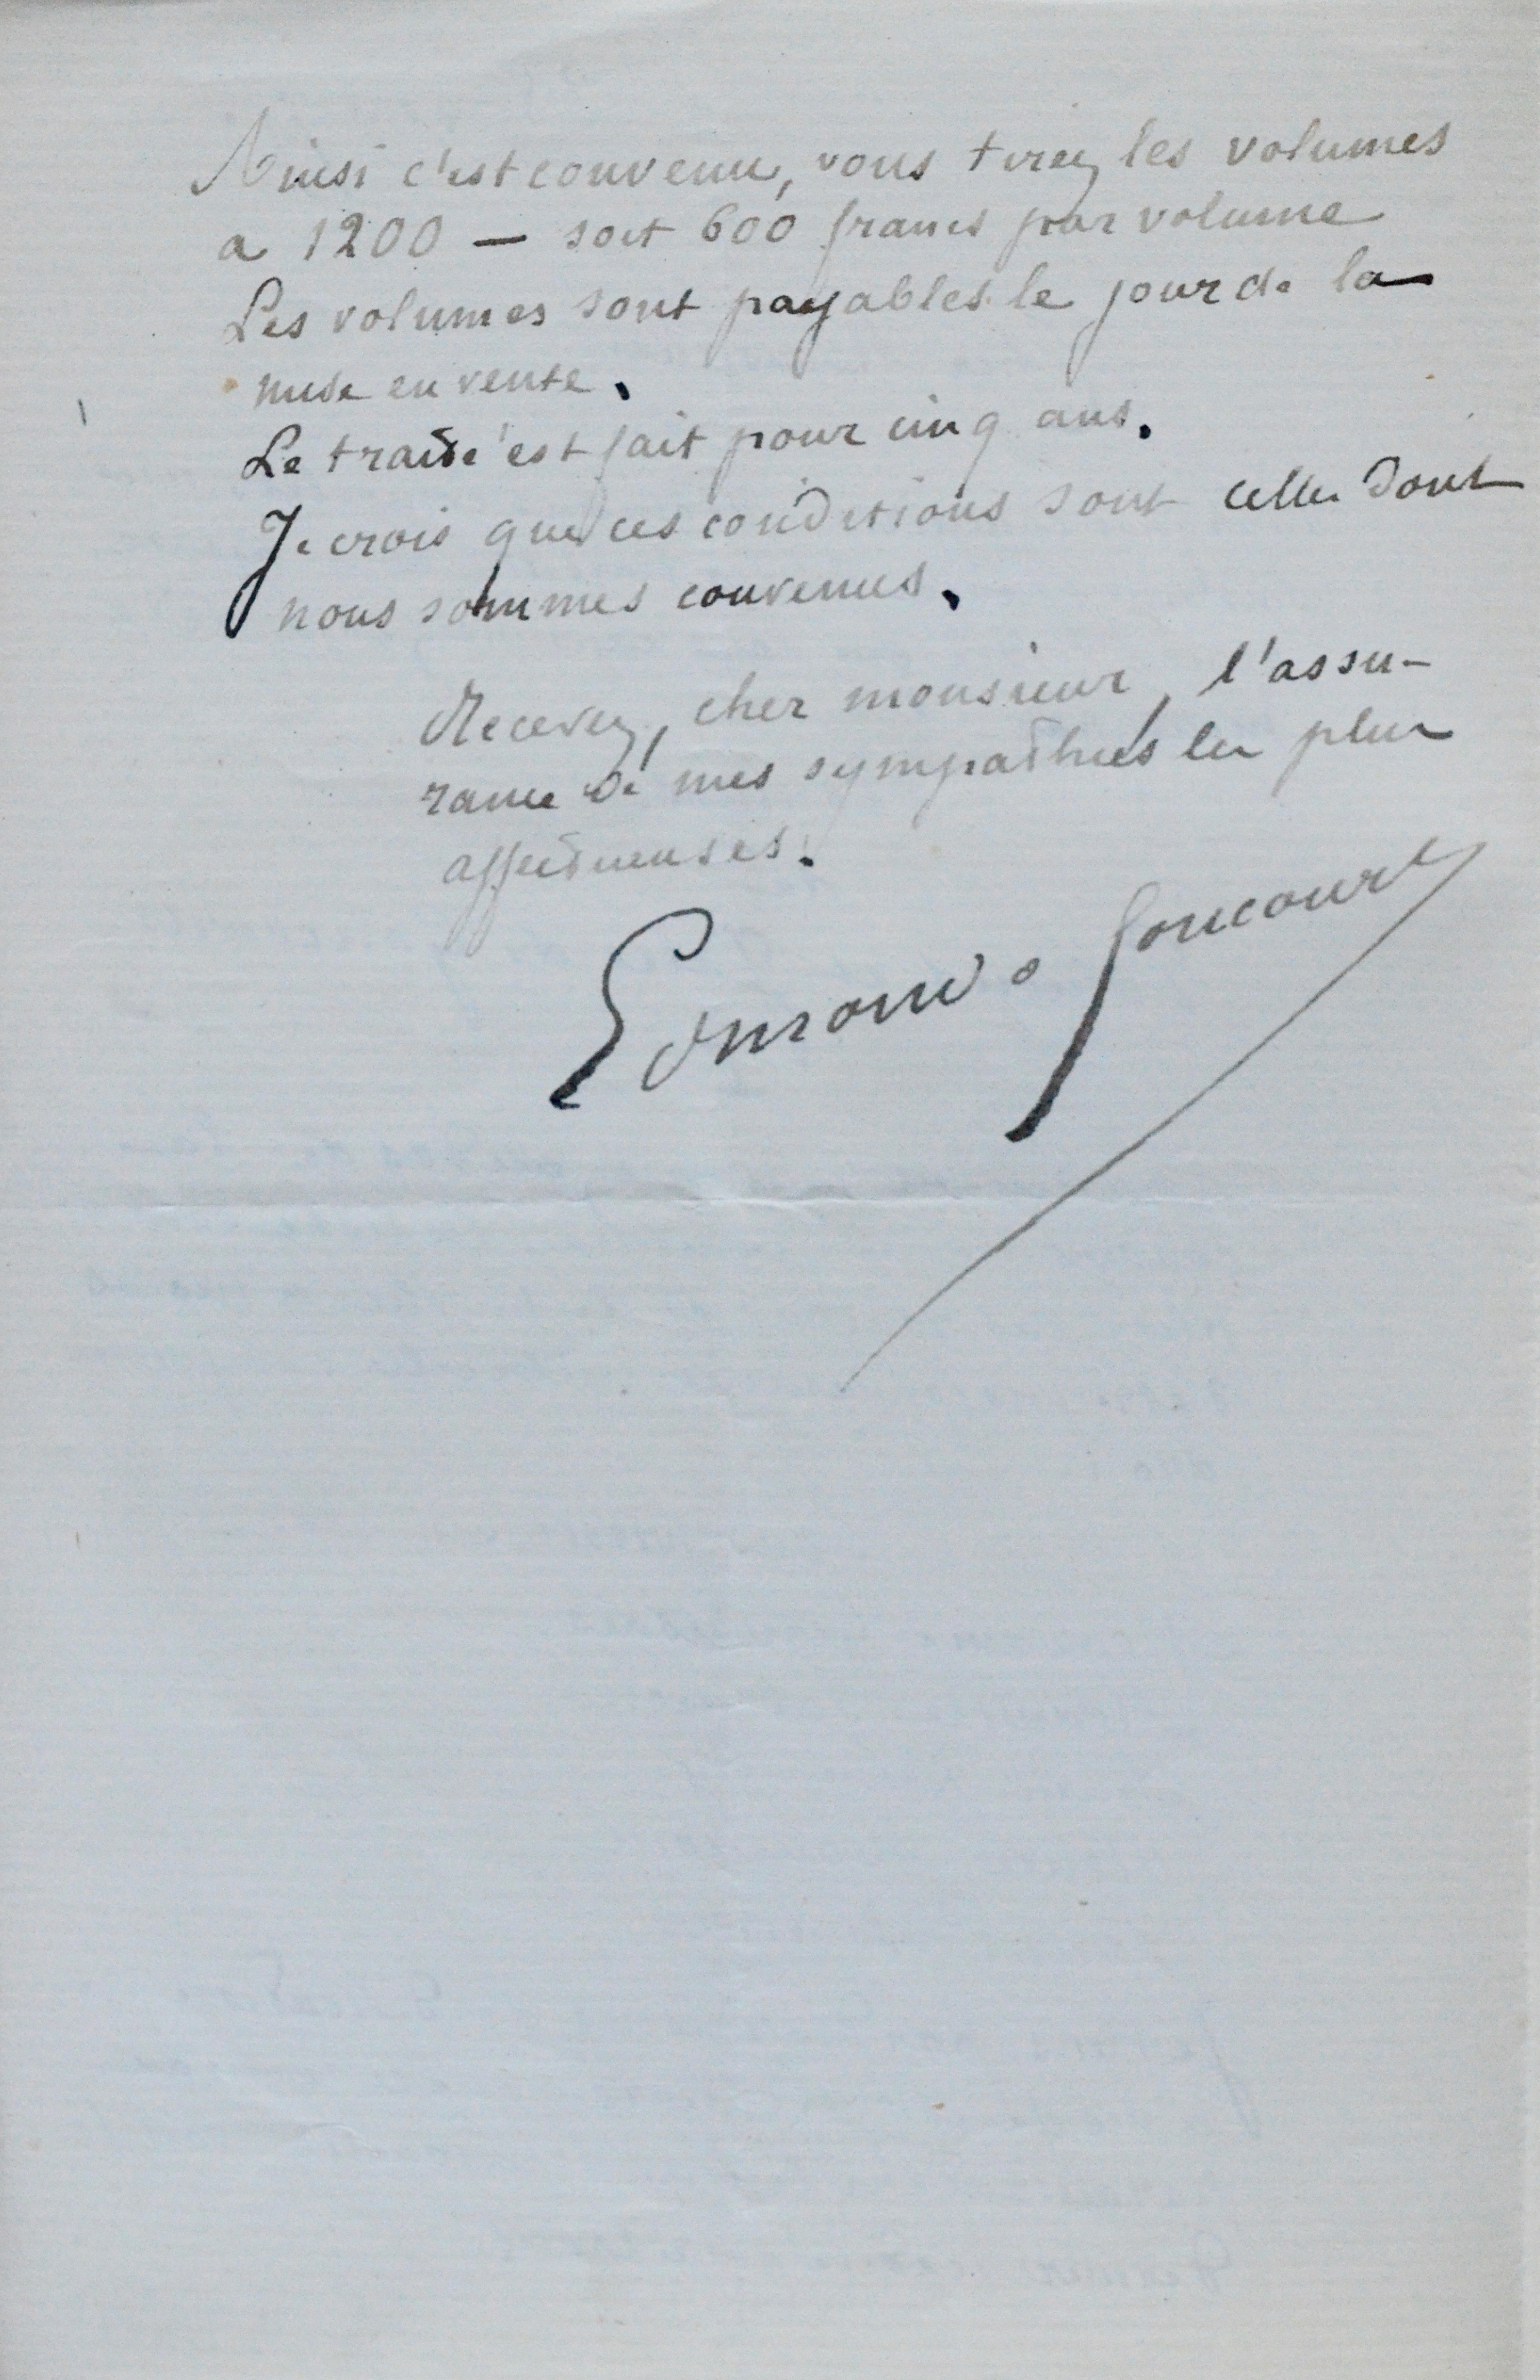 Ainsi c'est convenu, vous tirez les volumes
a 1200 — soit 600 francs par volume
Les volumes sont payables le jour de la
mise en vente.
Le traité est fait pour cinq ans.
Je crois que ces conditions sont celles dont
nous sommes convenus.
Recevez, cher monsieur, l'assu-
rance de mes sympathies les plus
affectueuses.
Edmond de Goncourt